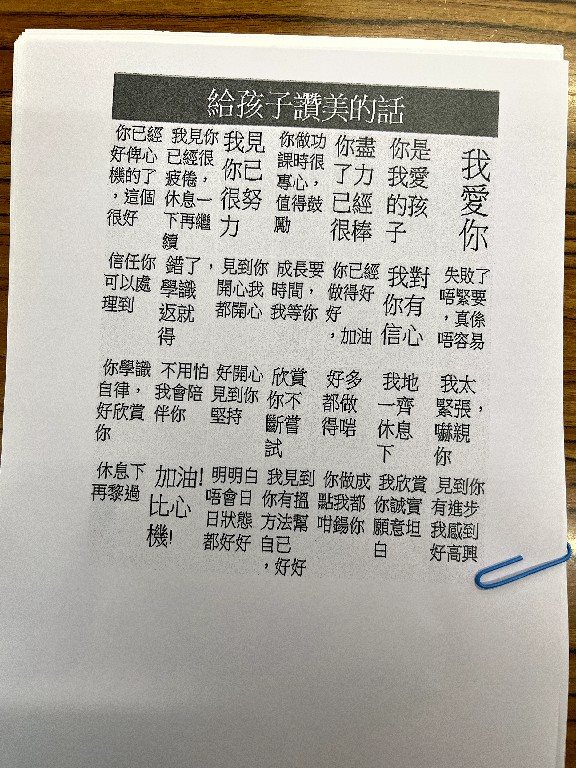 給孩子讚美的話
我
愛
你
你是
我愛
的孩
子
你盡
了力
已經
很棒
你做功
課時很
專心,
值得鼓
勵
我見
你已
很努
力
我見你
已經很
疲倦,
休息一
下再繼
續
你已經
好俾心
機的了
,這個
很好
失敗了
唔緊要
,真係
唔容易
我對
你有
信心
你已經
做得好
好
,加油
成長要
時間,
我等你
見到你
開心我
都開心
錯了,
學識
返就
得
信任你
可以處
理到
我太
緊張,
嚇親
你
我地
一齊
休息
下
好多
都做
得啱
欣賞
你不
斷嘗
試
好開心
見到你
堅持
不用怕
我會陪
伴你
你學識
自律,
好欣賞
你
見到你
有進步
我感到
好高興
我欣賞
你誠實
願意坦
白
你做成
點我都
咁錫你
我見到
你有搵
方法幫
自己
,好好
明明白
唔會日
日狀態
都好好
加油!
比心
機!
休息下
再黎過